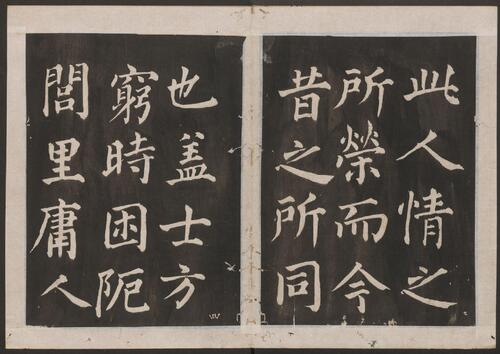 此人情之
所榮而今
昔之所同
也盖士方
窮時困阨
閭里庸人